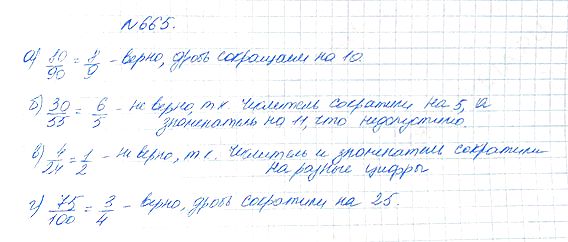 N665.
а) 10/90 = 1/9 - верно, дробь сокращаем на 10.
б) 30/55 = 6/5 - не верно, т к. числитель сократили на 5, а
знаменатель на 11, что недопустимо.
в) 4/24 = 1/2 - не верно, т к. числитель и знаменатель сократили
на разные цифры
г) 75/100 = 3/4 - верно, дробь сократили на 25.